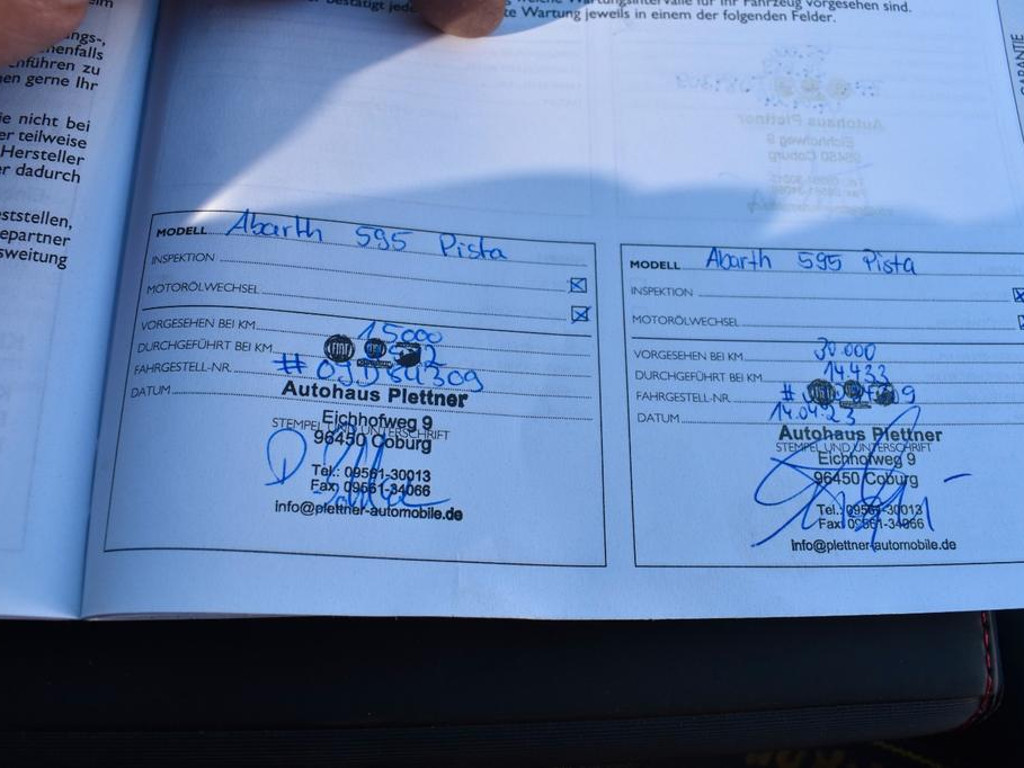 ings-,
enfalls
nführen zu
en gerne Ihr
ie nicht bei
er teilweise
Hersteller
r dadurch
ststellen,
epartner
sweitung
Wartungsintervalle für Ihr Fahrzeug vorgesehen sind.
bestätigt jede
te Wartung jeweils in einem der folgenden Felder.
GARANTIE
MODELL Abarth 595 Pista
INSPEKTION
MOTORÖLWECHSEL
VORGESEHEN BEI KM 15000
DURCHGEFÜHRT BEI KM
FAHRGESTELL-NR.
DATUM
FIAT
Autohaus Plettner
Eichhofweg 9
STEMPEL UND UNTERSCHRIFT
96450 Coburg
Tel.: 09561-30013
Fax: 09561-34066
info@plettner-automobile.de
MODELL Abarth 595 Pista
INSPEKTION
MOTORÖLWECHSEL
VORGESEHEN BEI KM 30.000
DURCHGEFÜHRT BEI KM 14433
FAHRGESTELL-NR.
DATUM 14.04.23
Autohaus Plettner
STEMPEL UND UNTERSCHRIFT
Eichhofweg 9
96450 Coburg
Tel.: 09561-30013
Fax: 09561-34066
info@plettner-automobile.de